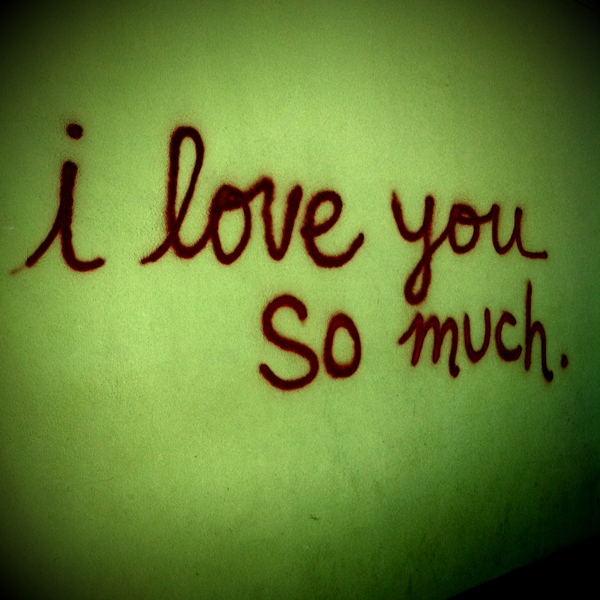 i love you
so much.